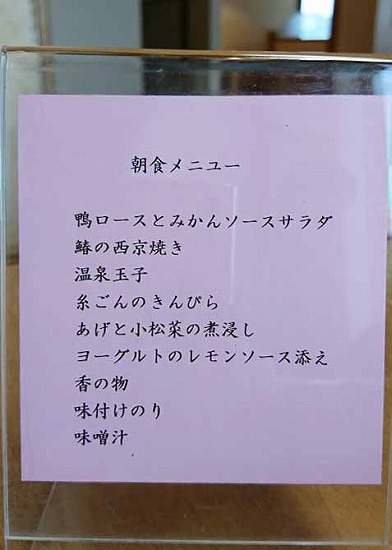 朝食メニュー
鴨ロースとみかんソースサラダ
鰆の西京焼き
温泉玉子
糸ごんのきんぴら
あげと小松菜の煮浸し
ヨーグルトのレモンソース添え
香の物
味付けのり
味噌汁